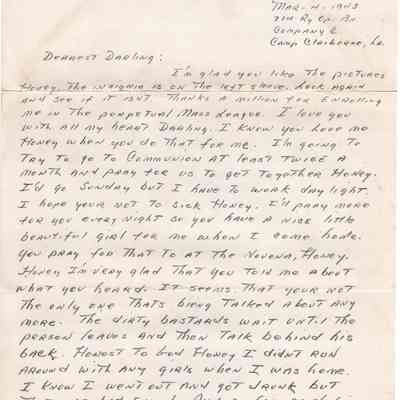 Mar. 4, 1943
711th Ry. Op. Bn.
Company C
Camp Claiborne, La.
Dearest Darling:
I'm glad you like the pictures
Honey. The insignia is on the left sleeve. Look again
and see if it isn't. Thanks a million for enrolling
me in the perpetual Mass League. I love you
with all my heart Darling. I know you love me
Honey when you do that for me. I'm going to
try to go to Communion at least twice a
month and pray for us to get together Honey.
I'd go Sunday but I have to work day light.
I hope your not to sick Honey. I'd pray more
for you every night so you have a nice little
beautiful girl for me when I come home.
You pray for that to at the Novena, Honey.
Honey I'm very glad that you told me about
what you heard. It seems that your not
the only one thats being talked about any
more. The dirty bastards wait until the
person leaves and then talk behind his
back. Honest to God Honey I didn't run
around with any girls when I was home.
I know I went out and got drunk but